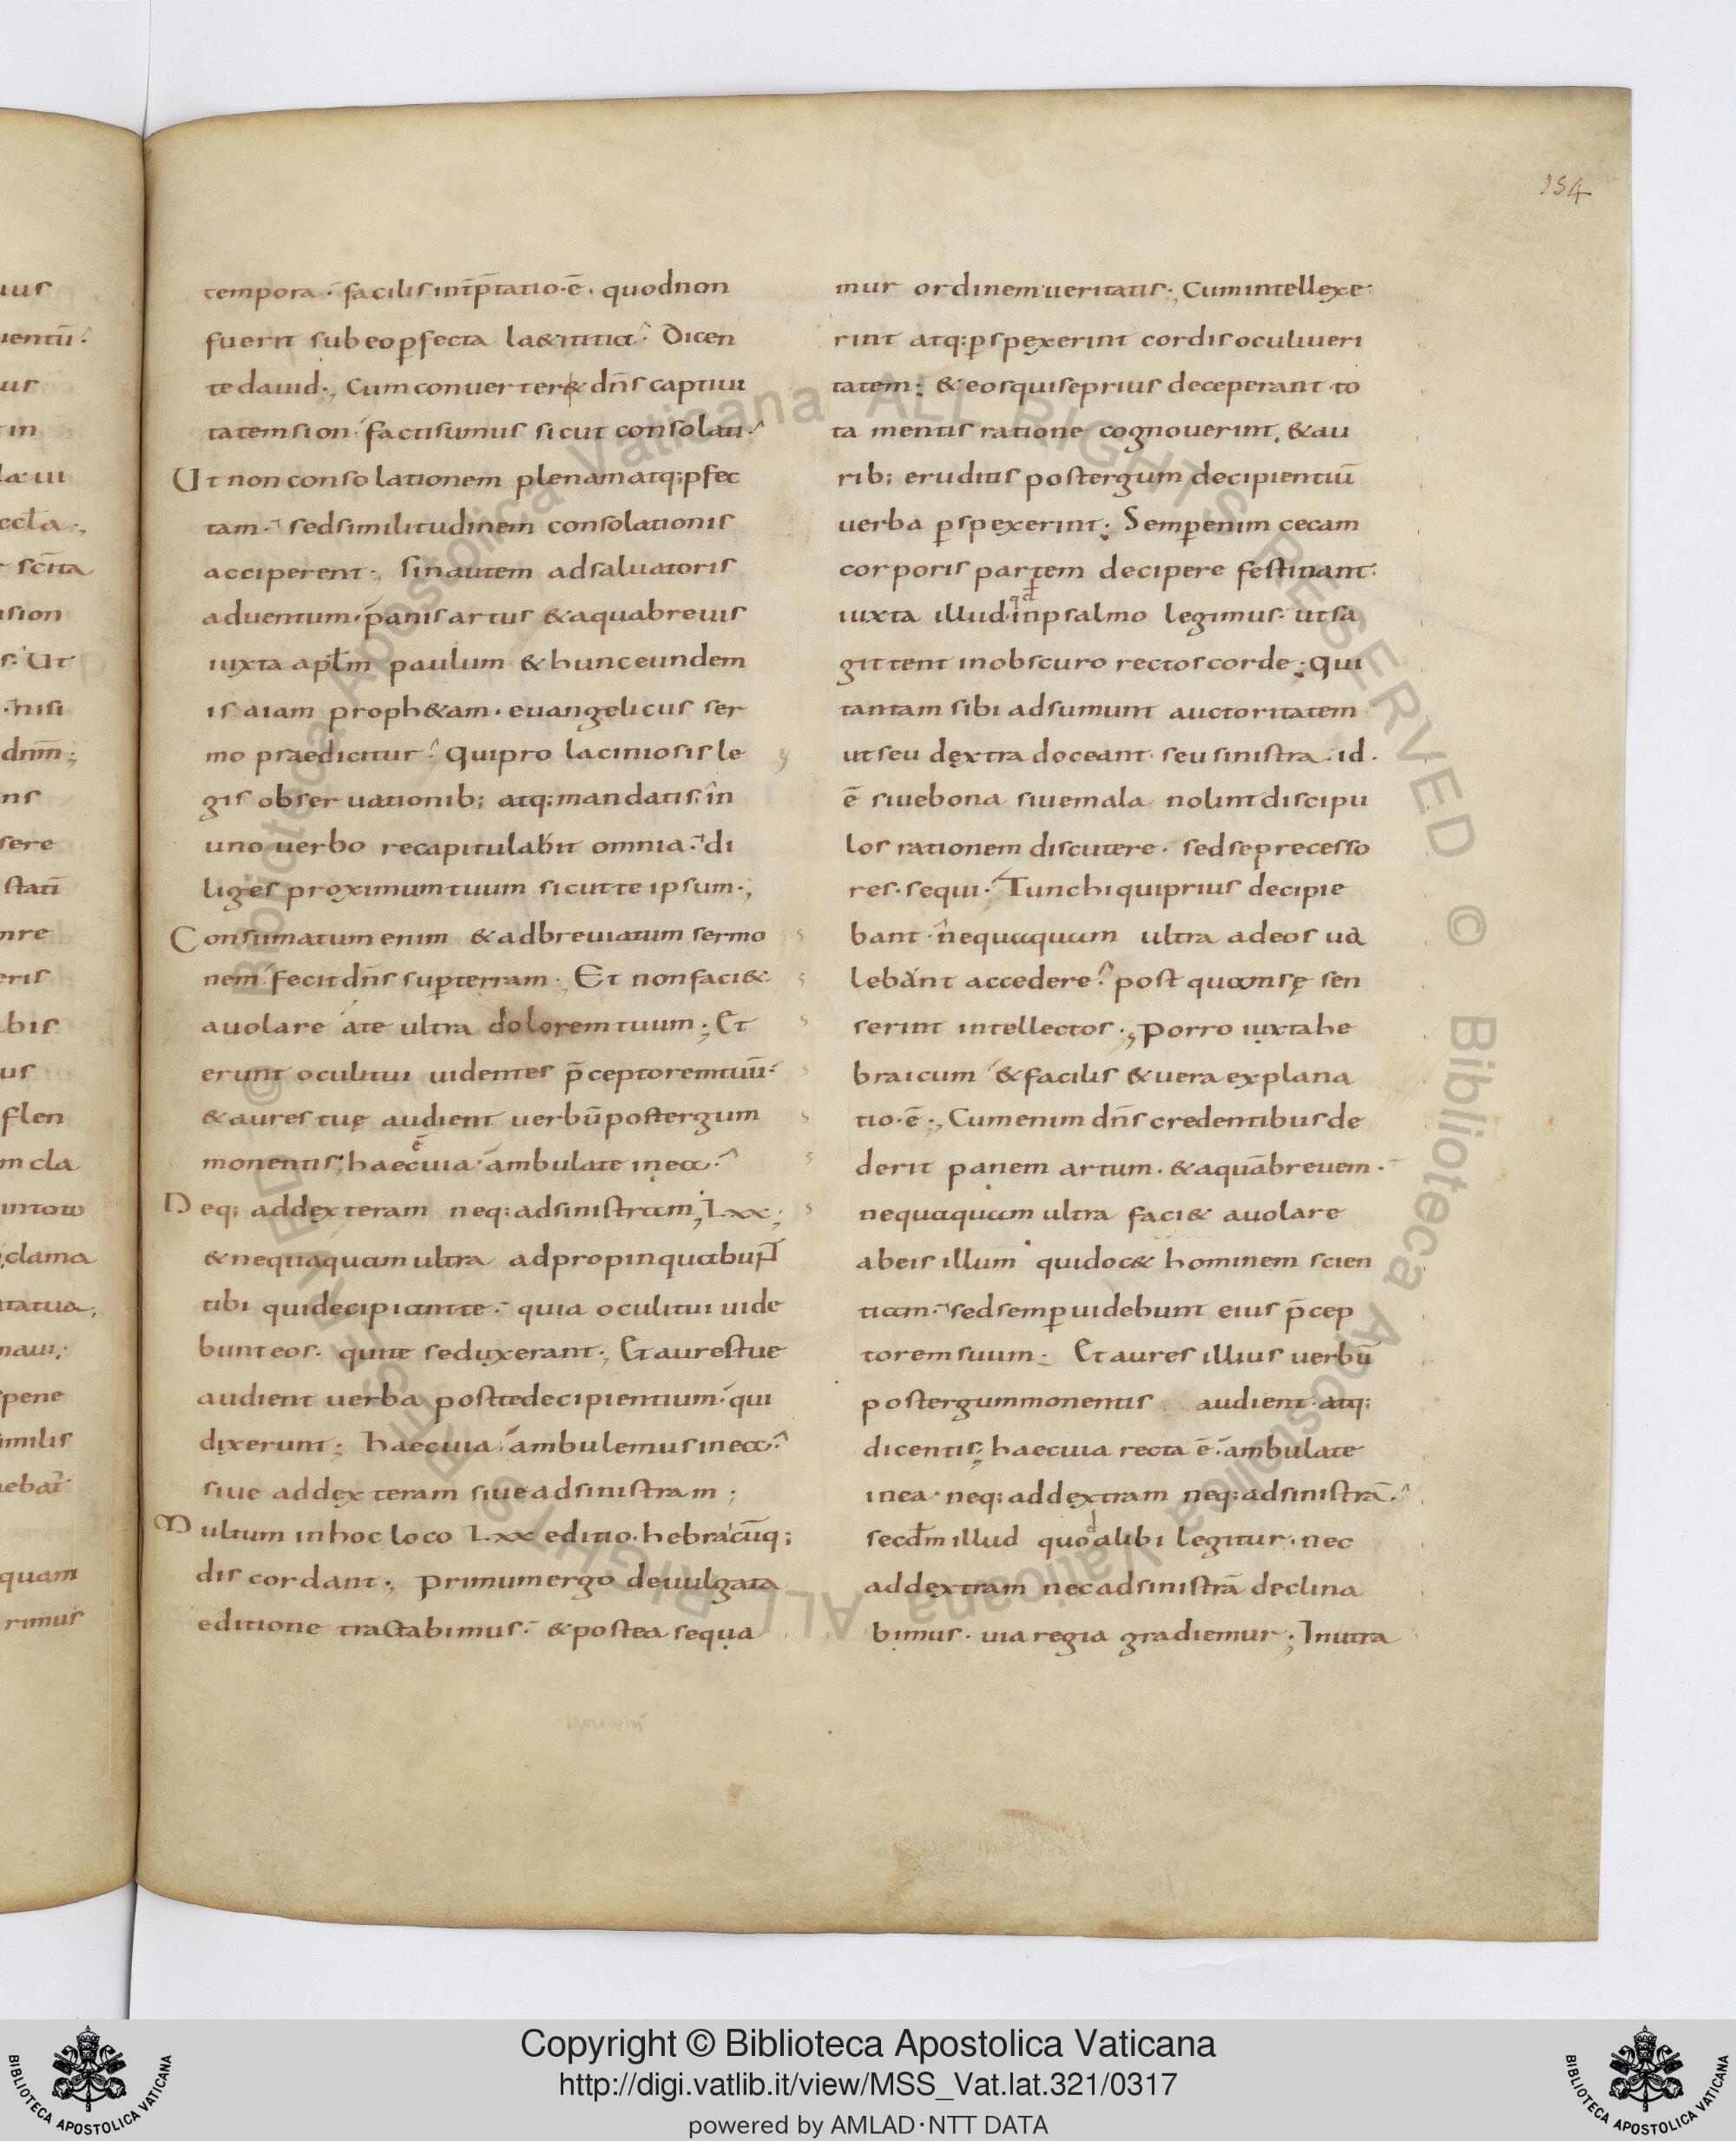 154
tempora· facilis int̄p̄tatio·ē· quodnon
fuerit sub eo ꝑfecta la&itia· Dicen
te dauid·, Cum conuerter& dn̄s captiui
tatem sion· facti sumus sicut consolati·
Ut non consolationem plenam atq; ꝑfec
tam· sed similitudinem consolationis
acciperent·, sin autem ad saluatoris
aduentum· panis artus & aqua breuis
iuxta apl̄m paulum & hunc eundem
isaiam proph&am· euangelicus ser
mo praedicitur· Qui pro laciniosis le
gis obseruationib; atq; mandatis· in
uno uerbo recapitulabit omnia· di
liges proximum tuum sicut te ipsum·,
Consumatum enim & adbreuiatum sermo
nem· fecit dn̄s suꝑ terram·, Et non faci&
auolare a te ultra dolorem tuum·; Et
erunt oculi tui uidentes p̄ceptorem tuū·
& aures tuę audient uerbū post ergum
monentis; haec ē uia· ambulate in ea·
Neq; ad dexteram neq; ad sinistram; Lxx;
& nequaquam ultra adpropinquabunt
tibi qui decipiant te· quia oculi tui uide
bunt eos· qui te seduxerant·, Et aures tue
audient uerba post te decipientium· qui
dixerunt; haec uia· ambulemus in ea·
siue ad dexteram siue ad sinistram;
Multum in hoc loco Lxx editio· hebraicūq;
discordant·, Primum ergo de uulgata
editione tractabimus· & postea sequa
mur ordinem ueritatis·, Cum intellexe
rint atq; ꝑspexerint cordis oculi ueri
tatem; & eos qui se prius deceperant to
ta mentis ratione cognouerint, & au
rib; eruditis post ergum decipientiū
uerba ꝑspexerint; Semꝑ enim cecam
corporis partem decipere festinant·
iuxta illud· qđ in psalmo legimus· ut sa
gittent in obscuro rectos corde; Qui
tantam sibi adsumunt auctoritatem
ut seu dextra doceant· seu sinistra· id·
ē siue bona siue mala nolint discipu
los ratione discutere· sed se precesso
res· sequi·, Tunc hi qui prius decipie
bant· nequaquam ultra ad eos ua
lebant accedere· post quam se sen
serint intellectos·, Porro iuxta he
braicum & facilis & uera explana
tio·ē·, Cum enim dn̄s credentibus de
derit panem artum· & aquā breuem·
nequaquam ultra faci& auolare
ab eis illum· qui doc& hominem scien
tiam· sed semꝑ uidebunt eius p̄cep
torem suum; Et aures illius uerbū
post ergum monentis audient· atq;
dicentis; haec uia recta ē· ambulate
in ea· neq; ad dextram neq; ad sinistrā·
secdm̄ illud quod alibi legitur· nec
ad dextram nec ad sinistrā declina
bimus· uia regia gradiemur·; In utra
Copyright © Biblioteca Apostolica Vaticana
http://digi.vatlib.it/view/MSS_Vat.lat.321/0317
powered by AMLAD·NTT DATA